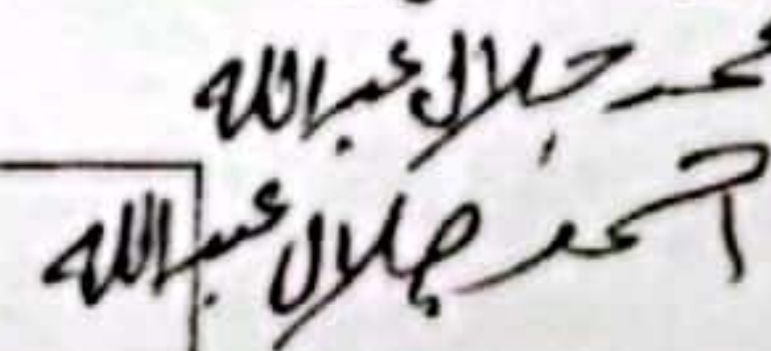 محمد جلال عبدالله
احمد جلال عبدالله